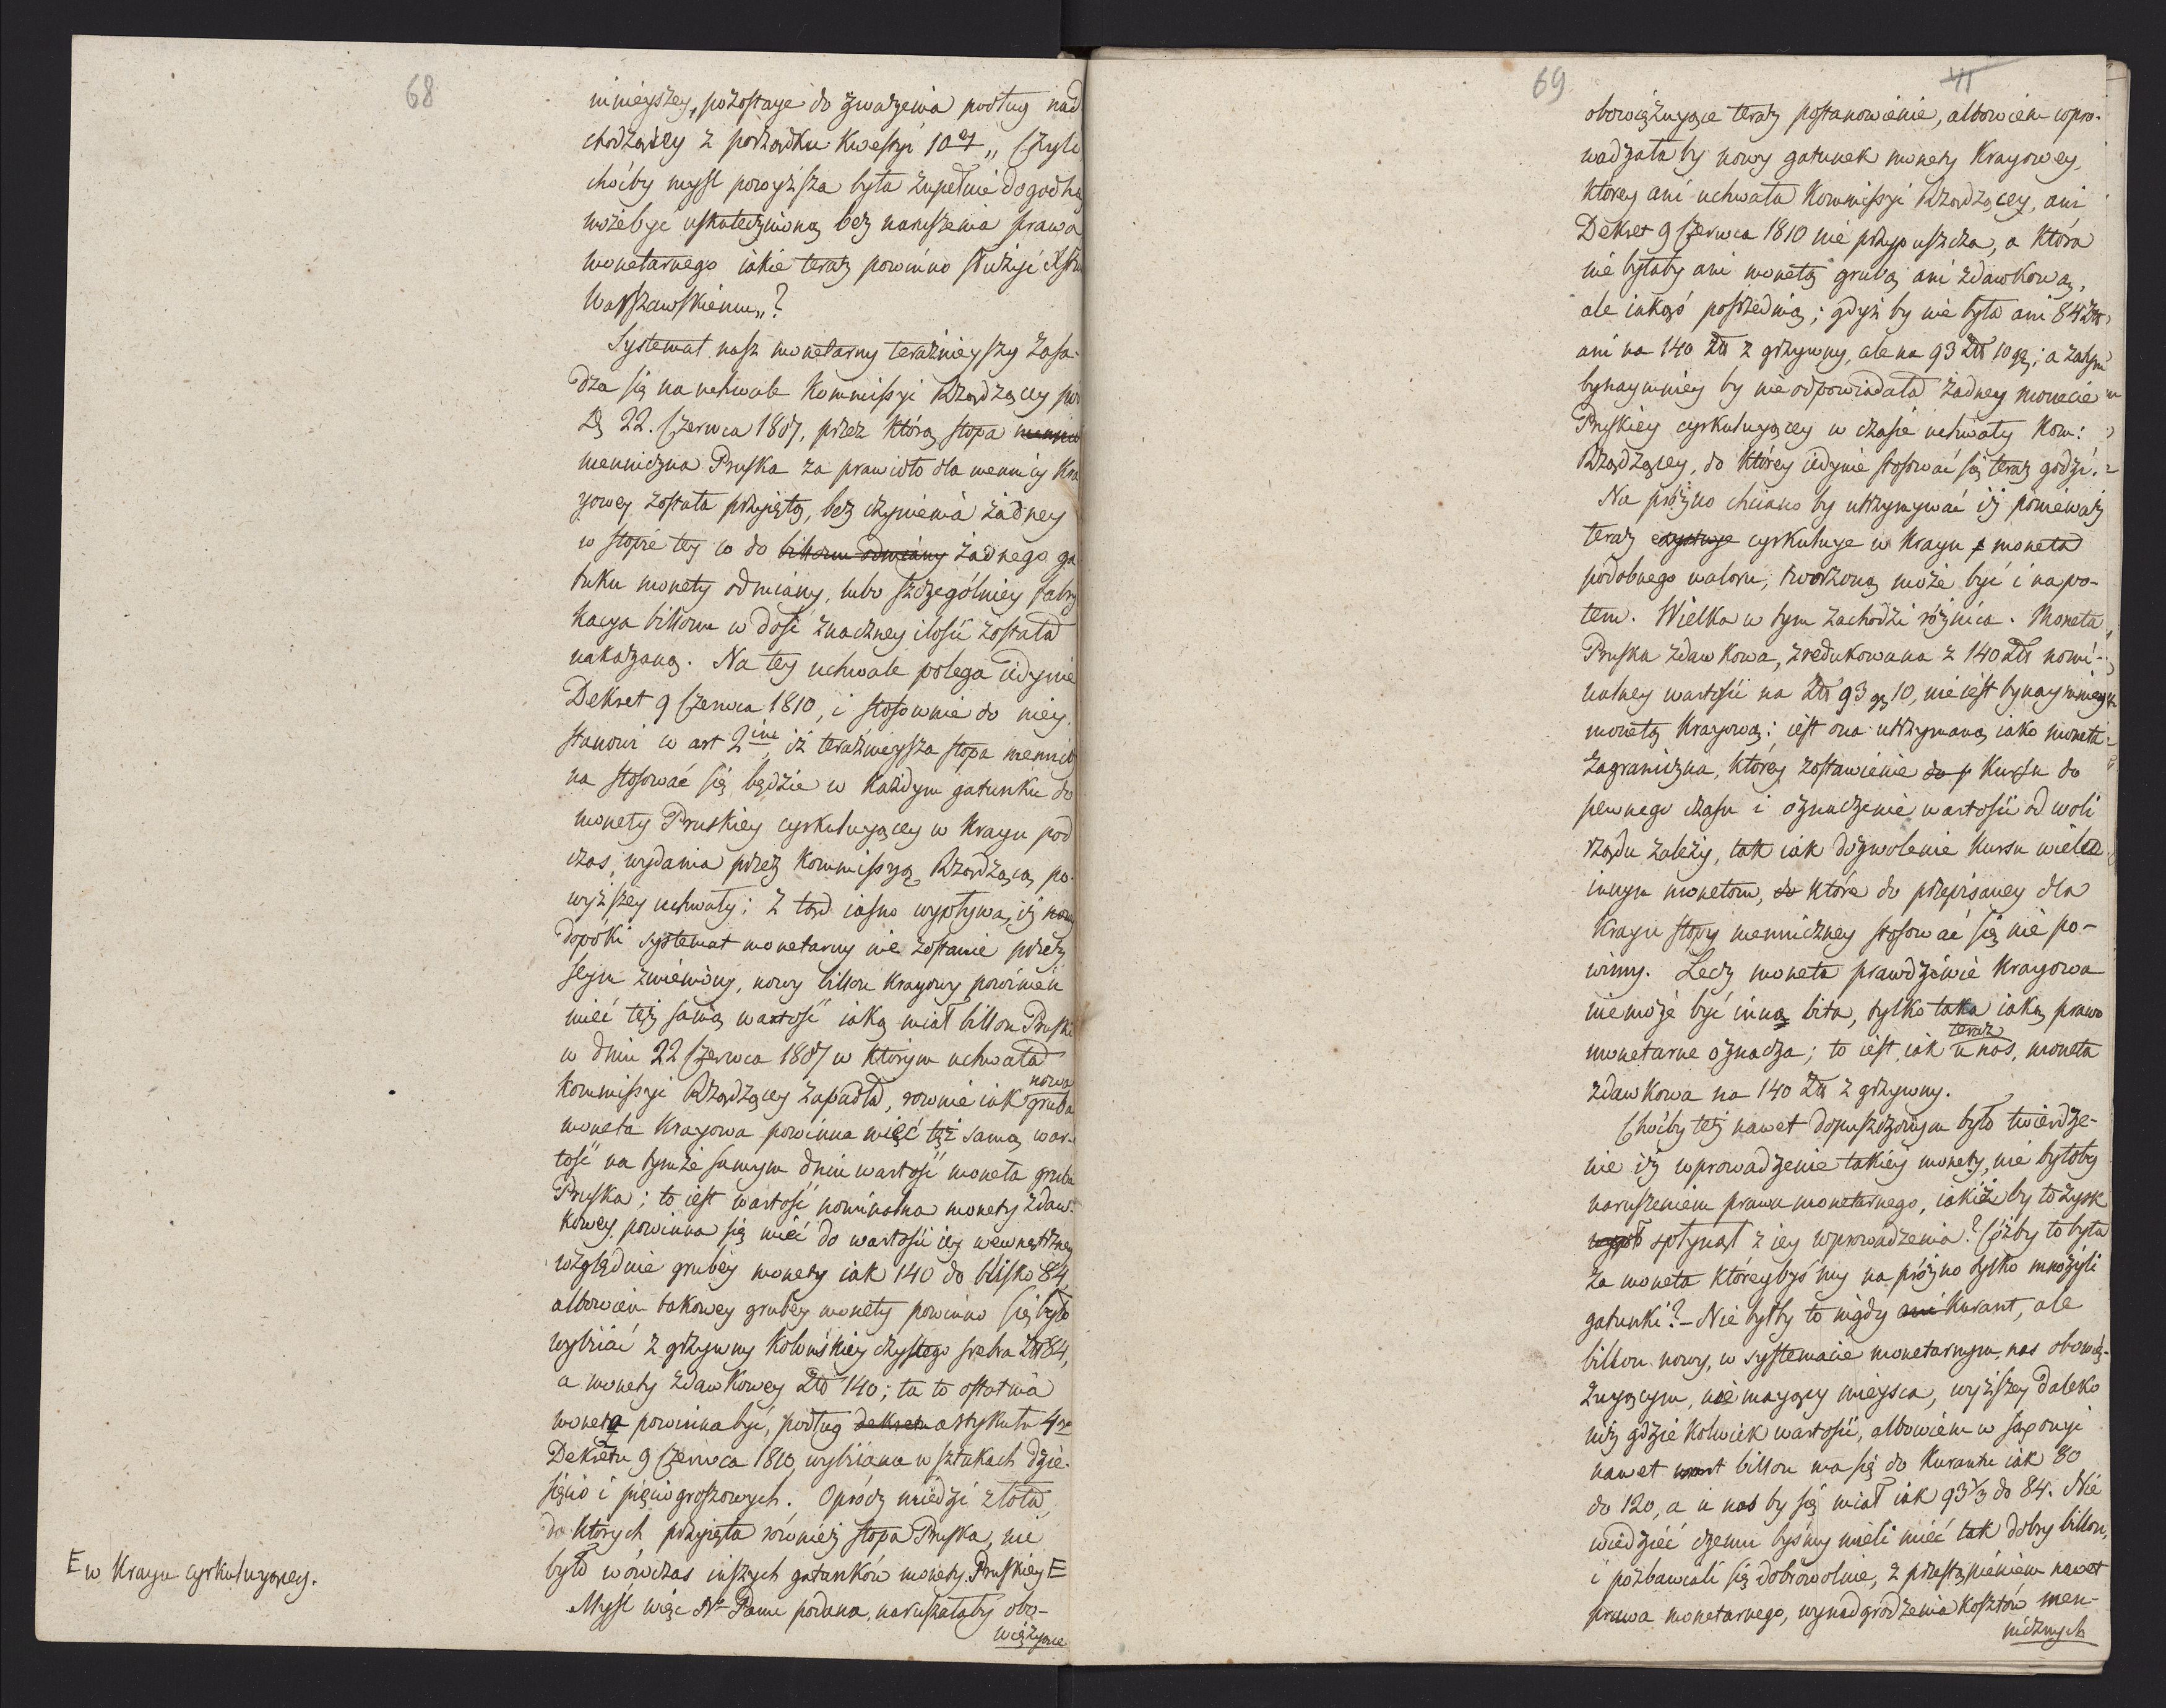 68
mnieyszey, pozostaye do zważenia podług nad
chodzącey z porządku kwestyi 10ey „ Czyli
choćby mysl powyższa była zupełnie dogodną
możebyć uskutecznioną bez naruszenia prawa
monetarnego iakie teraz powinno służyć Xstwu
Warszawskiemu„?
Systemat nasz monetarny teraźnieyszy zasa-
dza się na uchwale Kommissyi Rządzącey pod
D. 22. Czerwca 1807, przez którą stopa
menniczna Pruska za prawidło dla mennicy Kra
yowey została przyięta, bez czynienia żadney
w stopie tey co do billonu odmiany żadnego ga
tuku monety odmiany, lubo szczególniey fabry
kacya billonu w dość znaczney ilości została
nakazaną. Na tey uchwale polega iedynie
Dekret 9 Czerwca 1810, i stosownie do niey
stanowi w art 2im, iż teraźnieysza stopa mennicz
na stosować się będzie w każdym gatunku do
monety Pruskiey cyrkuluyącey w Krayu pod
czas wydania przez Kommissyą Rządzącą po-
wyższey uchwały; z tąd iasno wypływa, iż nowy
dopóki systemat monetarny nie zostanie przez
Seym zmieniony, nowy billon Krayowy powinien
mieć tęż samą wartość iaką miał billon Pruski
w dniu 22 Czerwca 1807 w którym uchwała
nowa
Kommissyi Rządzącey zapadła, rownie iak gruba
moneta Krayowa powinna mieć też samą war-
tość na tymże samym dniu wartość moneta gruba
Pruska; to iest wartość nominalna monety zdaw-
kowey powinna się mieć do wartości iey wewnętrzney
względnie grubey monety iak 140 do blisko 84,
albowiem takowey grubey monety powinno się było
wybiiać z grzywny Kolońskiey czystego srebra Zł 84,
a monety zdawkowey Zł 140; ta to ostatnia
moneta powinna być, podług dekretu artykułu 4go
Dekretu 9 Czerwca 1810 wybiiana w sztukach dzie-
sięcio i pięciogroszowych. Opróć miedzi złota,
do których przyięta również stopa Pruska, nie
było wówczas inszych gatunków monety Pruskiey E
E w Krayu cyrkuluyącey.
Mysl więc Nr Pana podana, naruszałaby obo-
wiązuyące
69
71
obowiązuyące teraz postanowienie, albowiem wpro-
wadzałaby nowy gatunek monety Krayowey,
którey ani uchwała Kommissyi Rządzącey, ani
Dekret 9 Czerwca 1810 nie przypuszcza, a która
nie byłaby ani monetą grubą ani zdawkową,
ale iakąś pośrednią; gdyż by nie była ani 84 Zł
ani na 140 Zł z grzywny, ale na 93 Zł 10 gr; a zatym
bynaymniey by nie odpowiadała żadney monecie
Pruskiey cyrkuluyącey w czasie uchwały Kom:
Rządzącey, do którey iedynie stosować się teraz godzi.
Na próżno chciano by utrzymywać iż ponieważ
teraz cyrkuluje w Krayu moneta
podobnego waloru, tworzoną może być i na po-
tem. Wielka w tym zachodzi różnica. Moneta
Pruska zdawkowa, zredukowana z 140 Zł nomi-
nalney wartości na Zł 93 gr 10, nie iest bynaymniey
monetą Krayową; iest ona utrzymaną iako moneta
zagraniczna, którey zostawienie do p Kursu do
pewnego czasu i oznaczenie wartości od woli
rządu zależy, tak iak dozwolenie kursu wielu
innym monetom, do które do przepisaney dla
Krayu stopy menniczney stosować się nie po-
winny. Lecz moneta prawdziwie Krayowa
nie może być inną bita, tylko taka iaką prawo
teraz
monetarne oznacza; to iest, iak u nas, moneta
zdawkowa na 140 Zł z grzywny.
Choćby też nawet dopuszczonym było twierdze-
nie iż wprowadzenie takiey monety, nie byłoby
naruszeniem prawa monetarnego, iakiżby to zysk
spłynął z iey wprowadzenia? Cóżby to była
za moneta któreybyśmy na próżno tylko mnożyli
gatunki? - Nie byłby to nigdy ani Kurant, ale
billon nowy, w systemacie monetarnym nas obowią-
zuyącym, nie mayący mieysca, wyższey daleko
niż gdzie kolwiek wartości, albowiem w Saxonyi
nawet billon ma się do Kurantu iak 80
do 120, a u nas by się miał iak 93 1/3 do 84. Nie
wiedzieć czemu byśmy mieli mieć tak dobry billon,
i pozbawiali się dobrowolnie, z przestąpieniem nawet
prawa monetarnego, wynadgrodzenia kosztów men-
nicznych